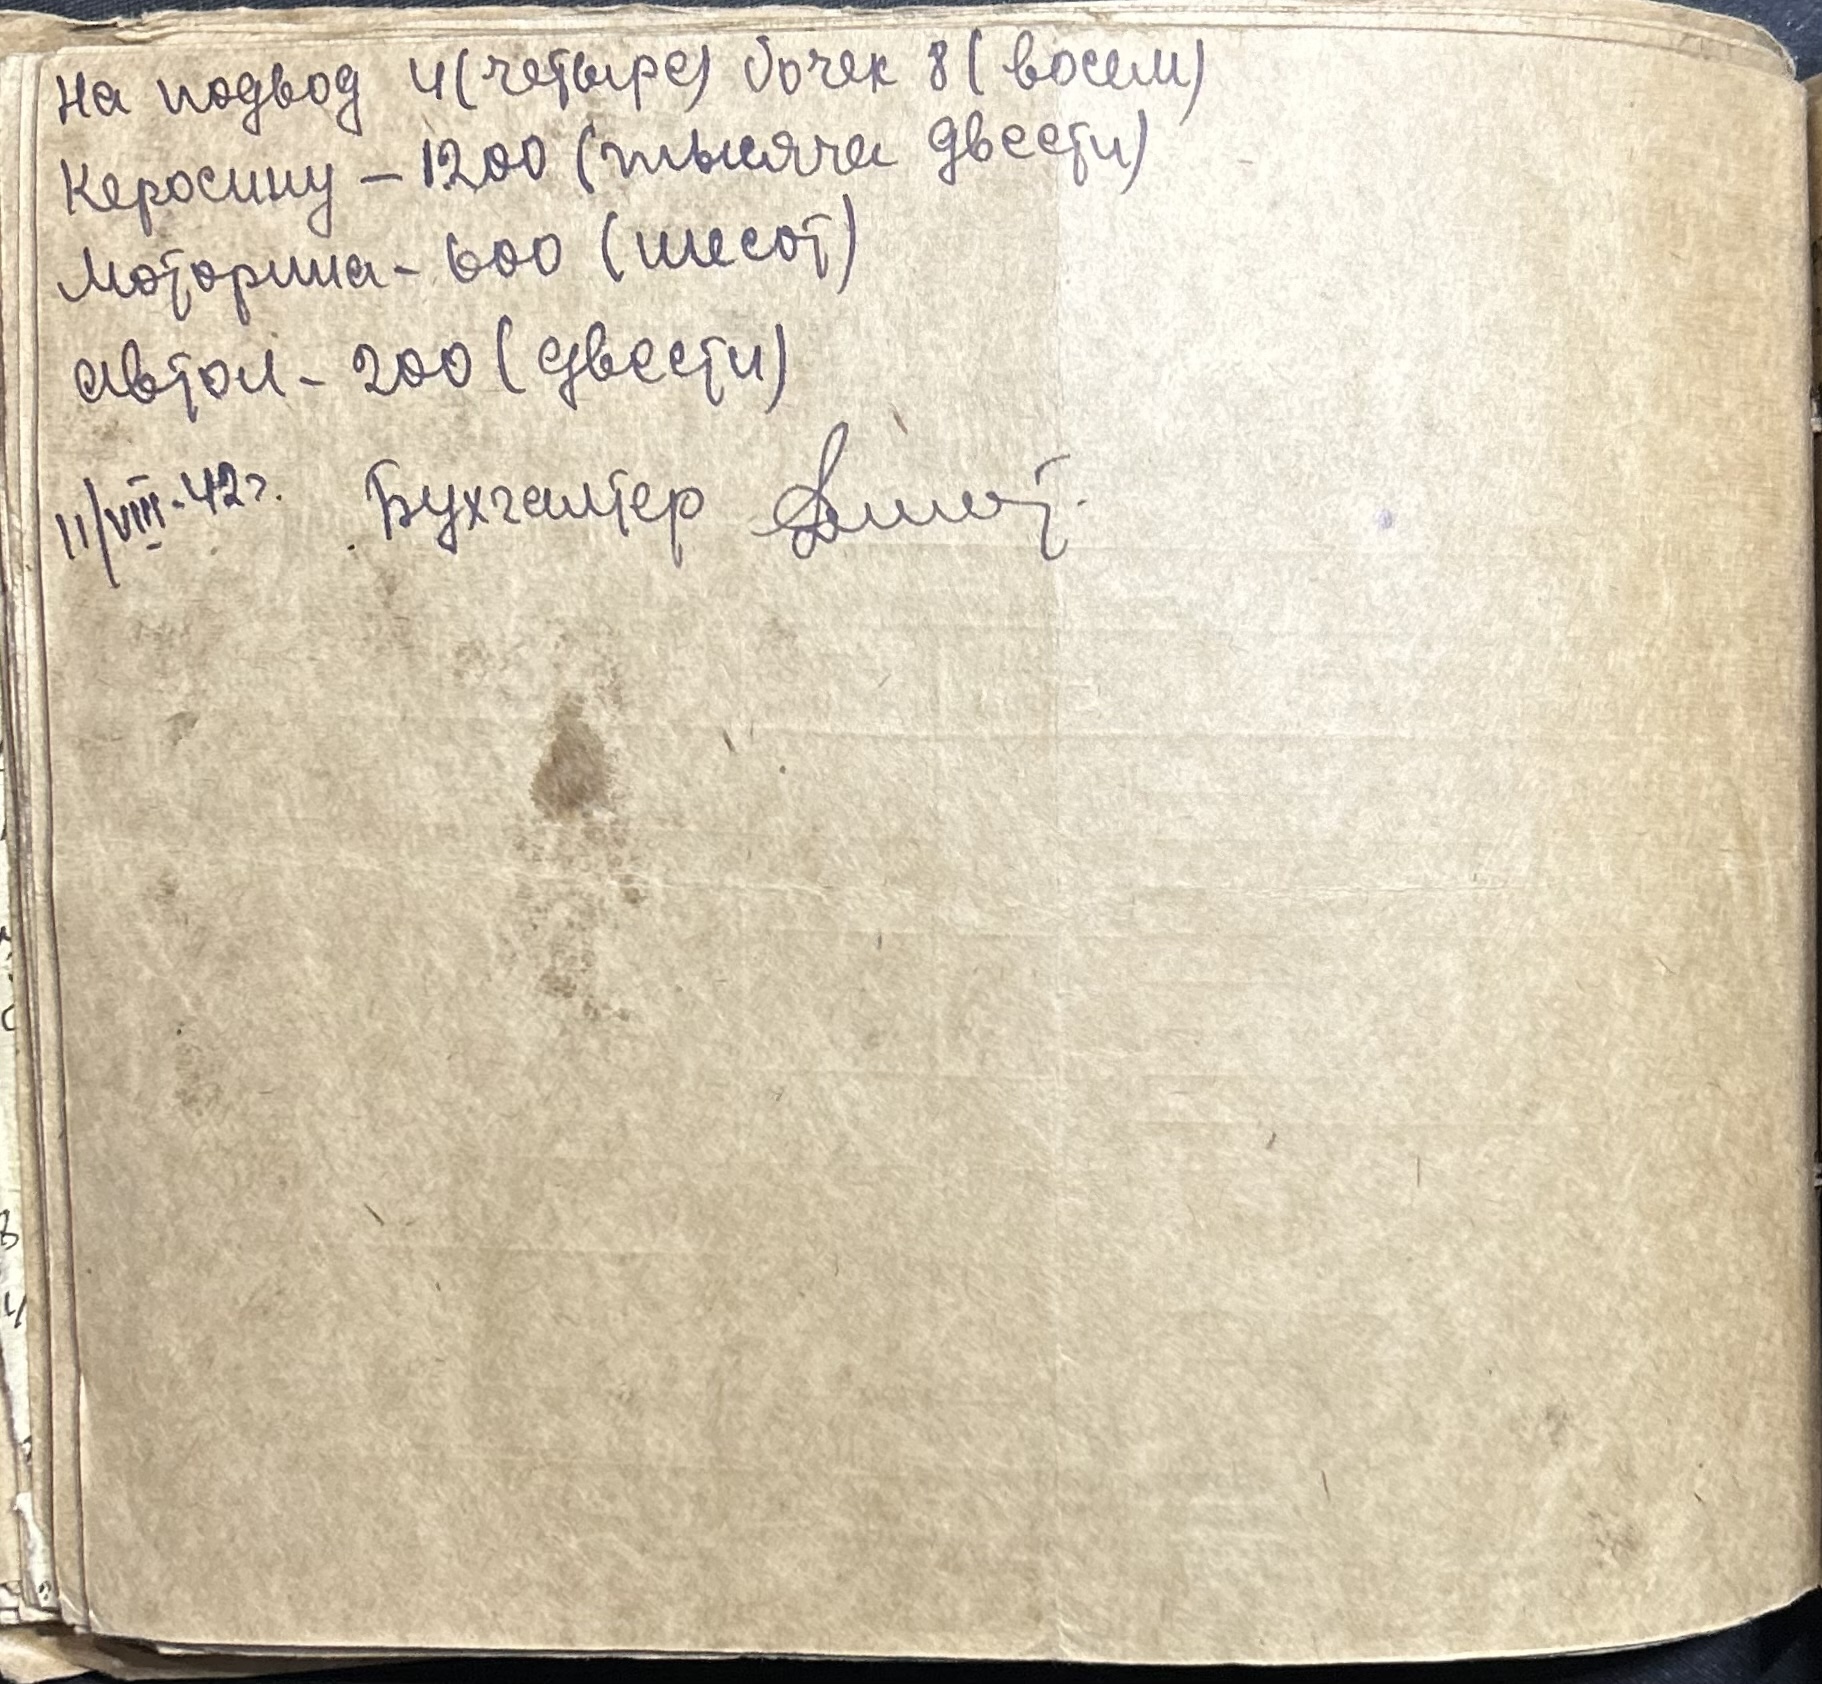 На подвод 4 (четыре) бочек 8 (восем)
Керосину – 1200 (тысяча двести)
Моторина - 600 (шесот)
Автол - 200 (двести)
11/VIII-42г. Бухгалтер